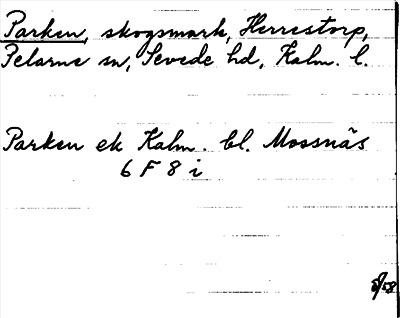 Parken, skogsmark, Herrestorp,
Pelarne sn, Sevede hd, Kalm. l.
Parken ek Kalm. bl. Mossnäs
6 F 8 i